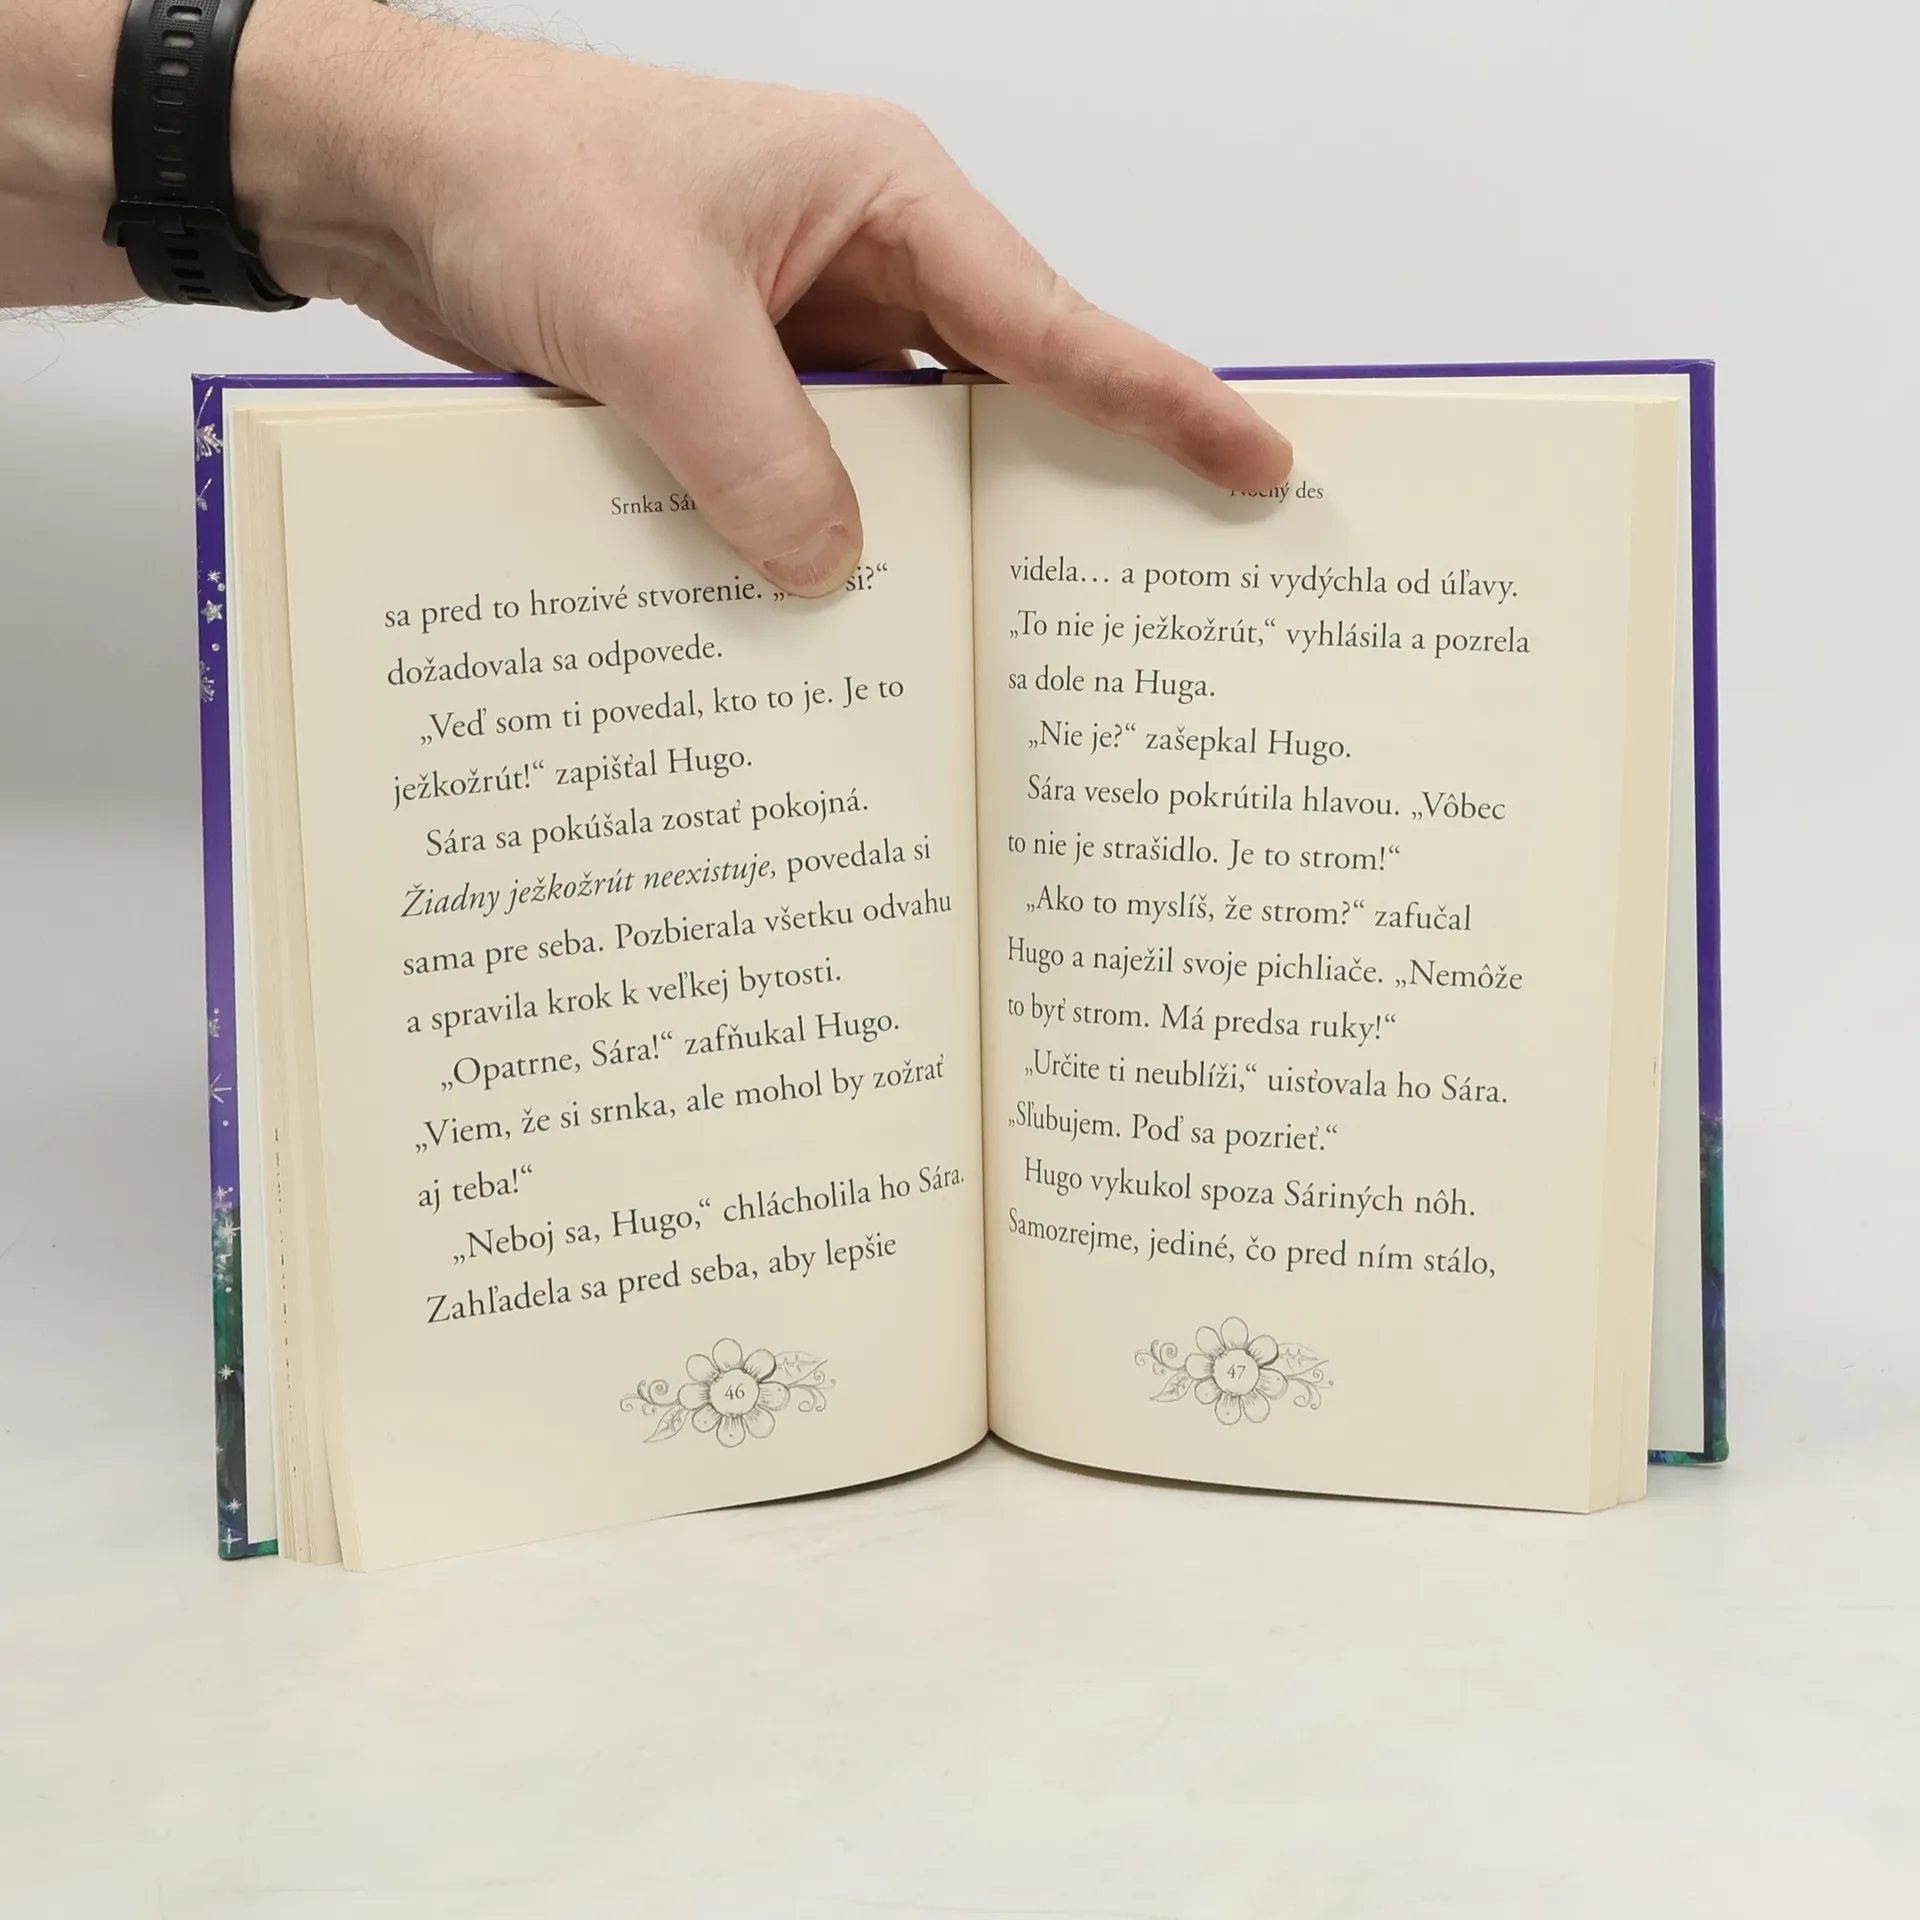 Srnka
sa pred to hrozivé stvorenie. „ si?“
dožadovala sa odpovede.
„Veď som ti povedal, kto to je. Je to
ježkožrút!“ zapišťal Hugo.
Sára sa pokúšala zostať pokojná.
Žiadny ježkožrút neexistuje, povedala si
sama pre seba. Pozbierala všetku odvahu
a spravila krok k veľkej bytosti.
„Opatrne, Sára!“ zafňukal Hugo.
„Viem, že si srnka, ale mohol by zožrať
aj teba!“
„Neboj sa, Hugo,“ chlácholila ho Sára.
Zahľadela sa pred seba, aby lepšie
46
des
videla... a potom si vydýchla od úľavy.
„To nie je ježkožrút,“ vyhlásila a pozrela
sa dole na Huga.
„Nie je?“ zašepkal Hugo.
Sára veselo pokrútila hlavou. „Vôbec
to nie je strašidlo. Je to strom!“
„Ako to myslíš, že strom?“ zafučal
Hugo a naježil svoje pichliače. „Nemôže
to byť strom. Má predsa ruky!“
„Určite ti neublíži,“ uisťovala ho Sára.
„Sľubujem. Poď sa pozrieť.“
Hugo vykukol spoza Sáriných nôh.
Samozrejme, jediné, čo pred ním stálo,
47